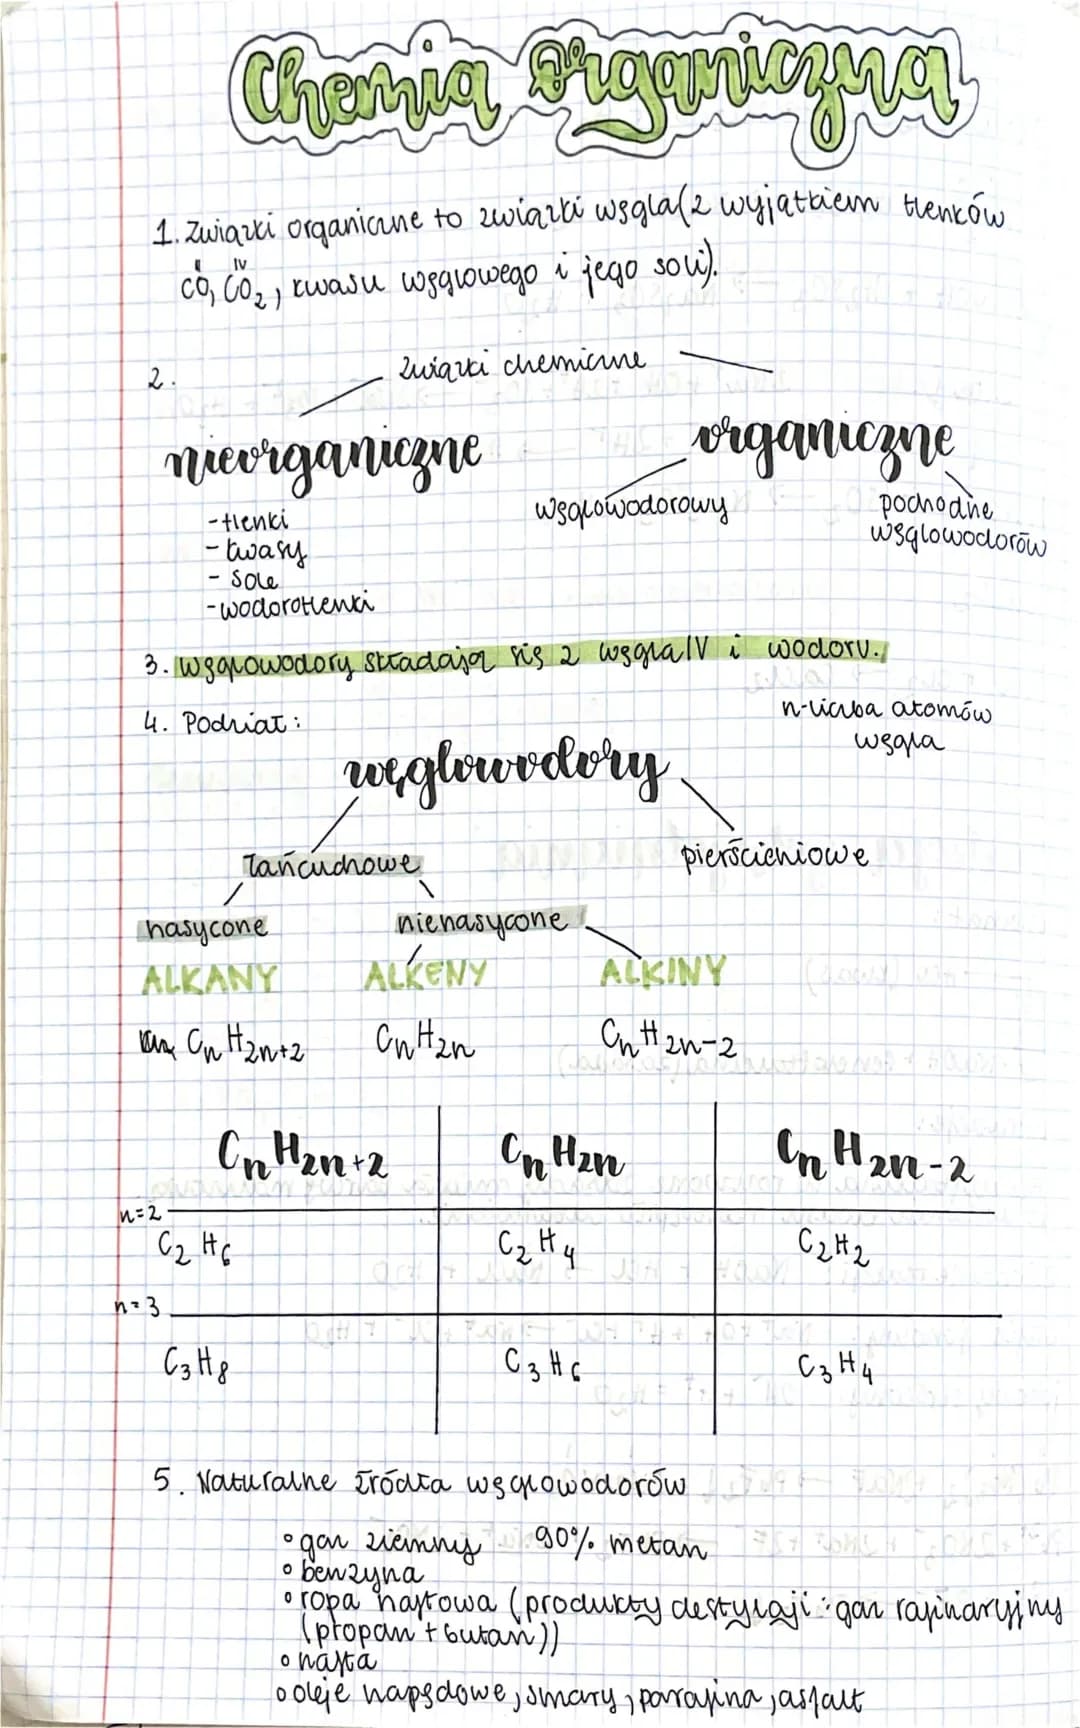 Chemia organiczna
1. Związki organiczne to związki węgla (z wyjątkiem tlenków
II IV
CO, CO2, kwasu węglowego i jego soli).
2. związki chemiczne
nieorganiczne organiczne
-tlenki
-kwasy
-sole
-wodorotlenki
węglowodorowy
pochodne
węglowodorów
3. Węglowodory składają się z węgla IV i wodoru.
4. Podział:
n-liczba atomów
węgla
węglowodory
łańcuchowe pierścieniowe
nasycone nienasycone
ALKANY ALKENY ALKINY
CnH2n+2 CnH2n CnH2n-2
CnH2n+2 CnH2n CnH2n-2
n=2
C2H6 C2H4 C2H2
n=3
C3H8 C3H6 C3H4
5. Naturalne źródła węglowodorów
◦ gaz ziemny 90% metan
◦ benzyna
◦ ropa naftowa (produkty destylacji: gaz rafinaryjny
(propan + butan))
◦ nafta
◦ oleje napędowe, smary, parafina, asfalt